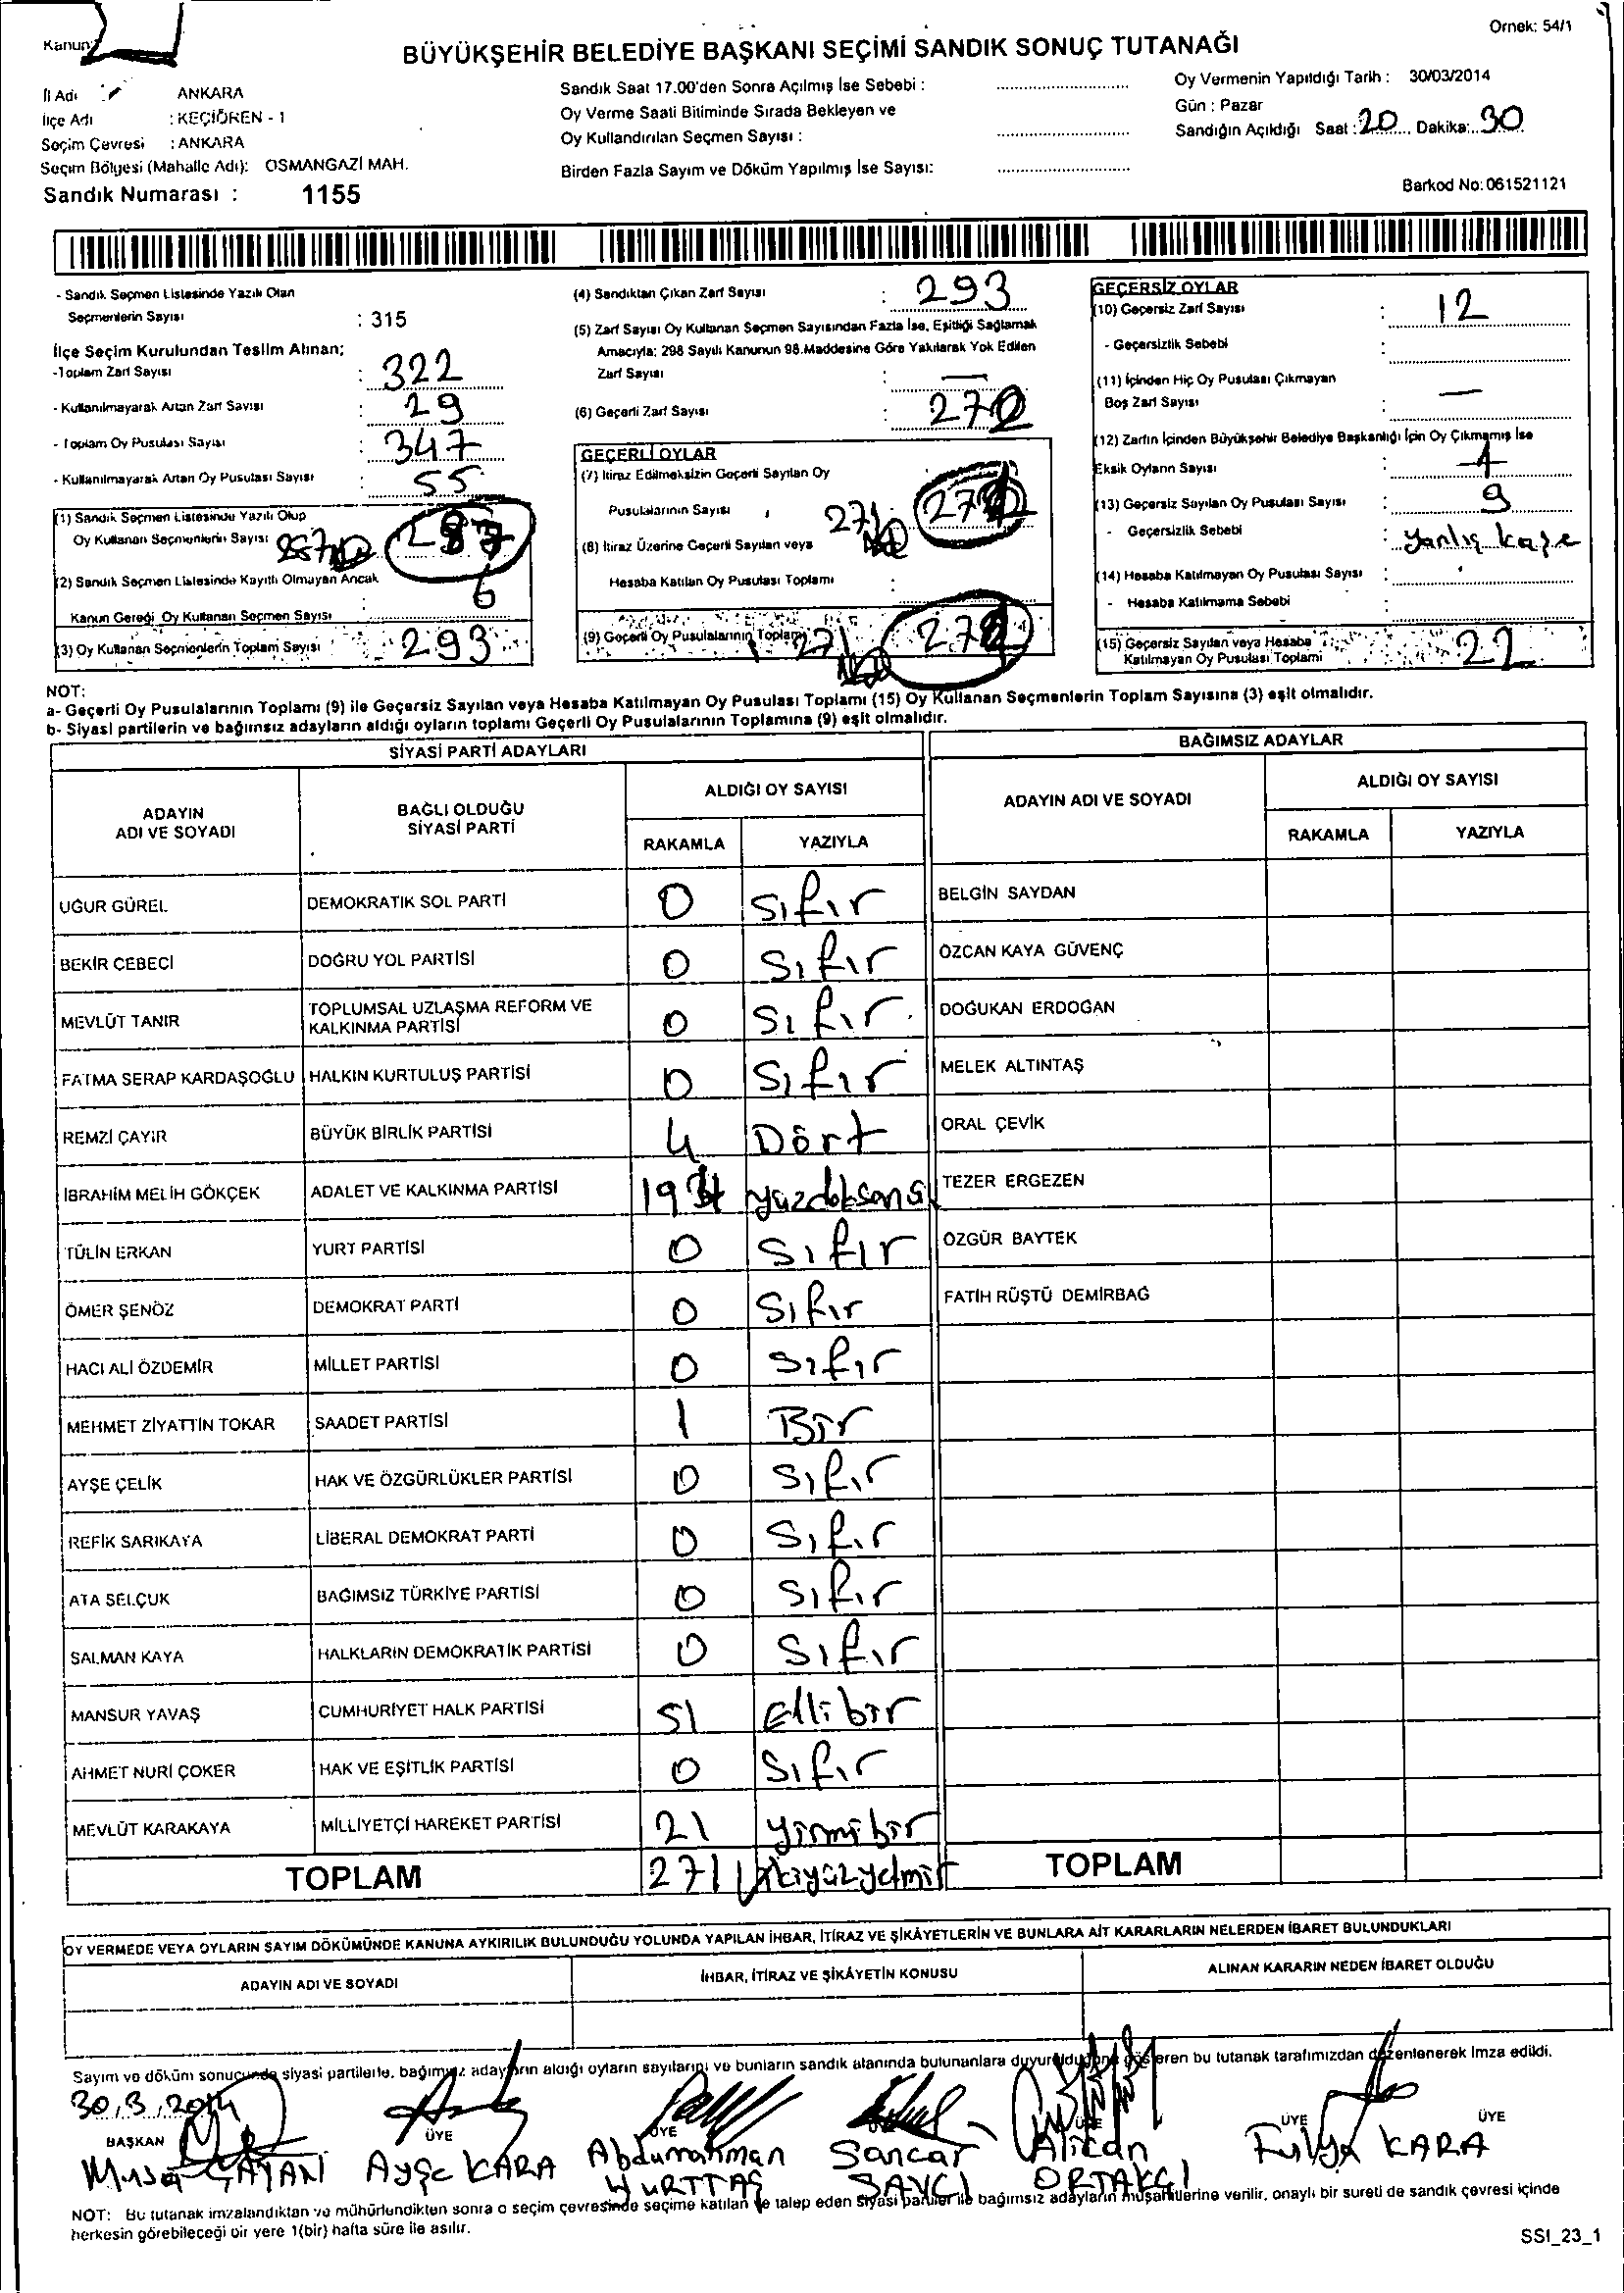 Kanun
Örnek: 54/1
BÜYÜKŞEHİR BELEDİYE BAŞKANI SEÇİMİ SANDIK SONUÇ TUTANAĞI
İl Adı : ANKARA
İlçe Adı : KEÇİÖREN - 1
Seçim Çevresi : ANKARA
Seçim Bölgesi (Mahalle Adı): OSMANGAZİ MAH.
Sandık Numarası : 1155
Sandık Saat 17.00'den Sonra Açılmış İse Sebebi :
Oy Verme Saati Bitiminde Sırada Bekleyen ve
Oy Kullandırılan Seçmen Sayısı :
Birden Fazla Sayım ve Döküm Yapılmış İse Sayısı:
Oy Vermenin Yapıldığı Tarih : 30/03/2014
Gün : Pazar
Sandığın Açıldığı Saat : 20 Dakika: 30
Barkod No: 061521121
- Sandık Seçmen Listesinde Yazılı Olan
Seçmenlerin Sayısı : 315
İlçe Seçim Kurulundan Teslim Alınan;
-Toplam Zarf Sayısı : 322
- Kullanılmayarak Artan Zarf Sayısı : 29
- Toplam Oy Pusulası Sayısı : 347
- Kullanılmayarak Artan Oy Pusulası Sayısı : 55
(1) Sandık Seçmen Listesinde Yazılı Olup
Oy Kullanan Seçmenlerin Sayısı 287
(2) Sandık Seçmen Listesinde Kayıtlı Olmayan Ancak
Kanun Gereği Oy Kullanan Seçmen Sayısı : 6
(3) Oy Kullanan Seçmenlerin Toplam Sayısı : 293
(4) Sandıktan Çıkan Zarf Sayısı : 293
(5) Zarf Sayısı Oy Kullanan Seçmen Sayısından Fazla İse, Eşitliği Sağlamak
Amacıyla; 298 Sayılı Kanunun 98.Maddesine Göre Yakılarak Yok Edilen
Zarf Sayısı : —
(6) Geçerli Zarf Sayısı : 272
GEÇERLİ OYLAR
(7) İtiraz Edilmeksizin Geçerli Sayılan Oy
Pusulalarının Sayısı 271 272
(8) İtiraz Üzerine Geçerli Sayılan veya
Hesaba Katılan Oy Pusulası Toplamı :
(9) Geçerli Oy Pusulalarının Toplamı 271 272
GEÇERSİZ OYLAR
(10) Geçersiz Zarf Sayısı : 12
- Geçersizlik Sebebi :
(11) İçinden Hiç Oy Pusulası Çıkmayan
Boş Zarf Sayısı : —
(12) Zarfın İçinden Büyükşehir Belediye Başkanlığı İçin Oy Çıkmamış İse
Eksik Oyların Sayısı : 1
(13) Geçersiz Sayılan Oy Pusulası Sayısı : 9
- Geçersizlik Sebebi : Yanlış kaşe
(14) Hesaba Katılmayan Oy Pusulası Sayısı :
- Hesaba Katılmama Sebebi :
(15) Geçersiz Sayılan veya Hesaba
Katılmayan Oy Pusulası Toplamı : 22
NOT:
a- Geçerli Oy Pusulalarının Toplamı (9) ile Geçersiz Sayılan veya Hesaba Katılmayan Oy Pusulası Toplamı (15) Oy Kullanan Seçmenlerin Toplam Sayısına (3) eşit olmalıdır.
b- Siyasi partilerin ve bağımsız adayların aldığı oyların toplamı Geçerli Oy Pusulalarının Toplamına (9) eşit olmalıdır.
SİYASİ PARTİ ADAYLARI
ADAYIN ADI VE SOYADI
BAĞLI OLDUĞU SİYASİ PARTİ
ALDIĞI OY SAYISI
RAKAMLA YAZIYLA
UĞUR GÜREL DEMOKRATİK SOL PARTİ 0 Sıfır
BEKİR CEBECİ DOĞRU YOL PARTİSİ 0 Sıfır
MEVLÜT TANIR TOPLUMSAL UZLAŞMA REFORM VE KALKINMA PARTİSİ 0 Sıfır
FATMA SERAP KARDAŞOĞLU HALKIN KURTULUŞ PARTİSİ 0 Sıfır
REMZİ ÇAYIR BÜYÜK BİRLİK PARTİSİ 4 Dört
İBRAHİM MELİH GÖKÇEK ADALET VE KALKINMA PARTİSİ 194
TÜLİN ERKAN YURT PARTİSİ 0 Sıfır
ÖMER ŞENÖZ DEMOKRAT PARTİ 0 Sıfır
HACI ALİ ÖZDEMİR MİLLET PARTİSİ 0 Sıfır
MEHMET ZİYATTİN TOKAR SAADET PARTİSİ 1 Bir
AYŞE ÇELİK HAK VE ÖZGÜRLÜKLER PARTİSİ 0 Sıfır
REFİK SARIKAYA LİBERAL DEMOKRAT PARTİ 0 Sıfır
ATA SELÇUK BAĞIMSIZ TÜRKİYE PARTİSİ 0 Sıfır
SALMAN KAYA HALKLARIN DEMOKRATİK PARTİSİ 0 Sıfır
MANSUR YAVAŞ CUMHURİYET HALK PARTİSİ 51 Ellibir
AHMET NURİ ÇOKER HAK VE EŞİTLİK PARTİSİ 0 Sıfır
MEVLÜT KARAKAYA MİLLİYETÇİ HAREKET PARTİSİ 21 yirmibir
TOPLAM 271 ikiyüzyetmiş
BAĞIMSIZ ADAYLAR
ADAYIN ADI VE SOYADI
ALDIĞI OY SAYISI
RAKAMLA YAZIYLA
BELGİN SAYDAN
ÖZCAN KAYA GÜVENÇ
DOĞUKAN ERDOĞAN
MELEK ALTINTAŞ
ORAL ÇEVİK
TEZER ERGEZEN
ÖZGÜR BAYTEK
FATİH RÜŞTÜ DEMİRBAĞ
TOPLAM
OY VERMEDE VEYA OYLARIN SAYIM DÖKÜMÜNDE KANUNA AYKIRILIK BULUNDUĞU YOLUNDA YAPILAN İHBAR, İTİRAZ VE ŞİKÂYETLERİN VE BUNLARA AİT KARARLARIN NELERDEN İBARET BULUNDUKLARI
ADAYIN ADI VE SOYADI İHBAR, İTİRAZ VE ŞİKÂYETİN KONUSU ALINAN KARARIN NEDEN İBARET OLDUĞU
Sayım ve döküm sonucunda siyasi partilerle, bağımsız adayların aldığı oyların sayılarını ve bunların sandık alanında bulunanlara duyurulduğunu gösteren bu tutanak tarafımızdan düzenlenerek imza edildi.
30.3.2014
BAŞKAN ÜYE ÜYE ÜYE ÜYE ÜYE
Musa ÇAYANİ Ayşe KARA Abdurrahman YURTTAŞ Sancar SAVCI Alican ORTAKÇI Fulya KARA
NOT: Bu tutanak imzalandıktan ve mühürlendikten sonra o seçim çevresinde seçime katılan ve talep eden siyasi partiler ile bağımsız adayların müşahitlerine verilir, onaylı bir sureti de sandık çevresi içinde
herkesin görebileceği bir yere 1(bir) hafta süre ile asılır.
SSI_23_1